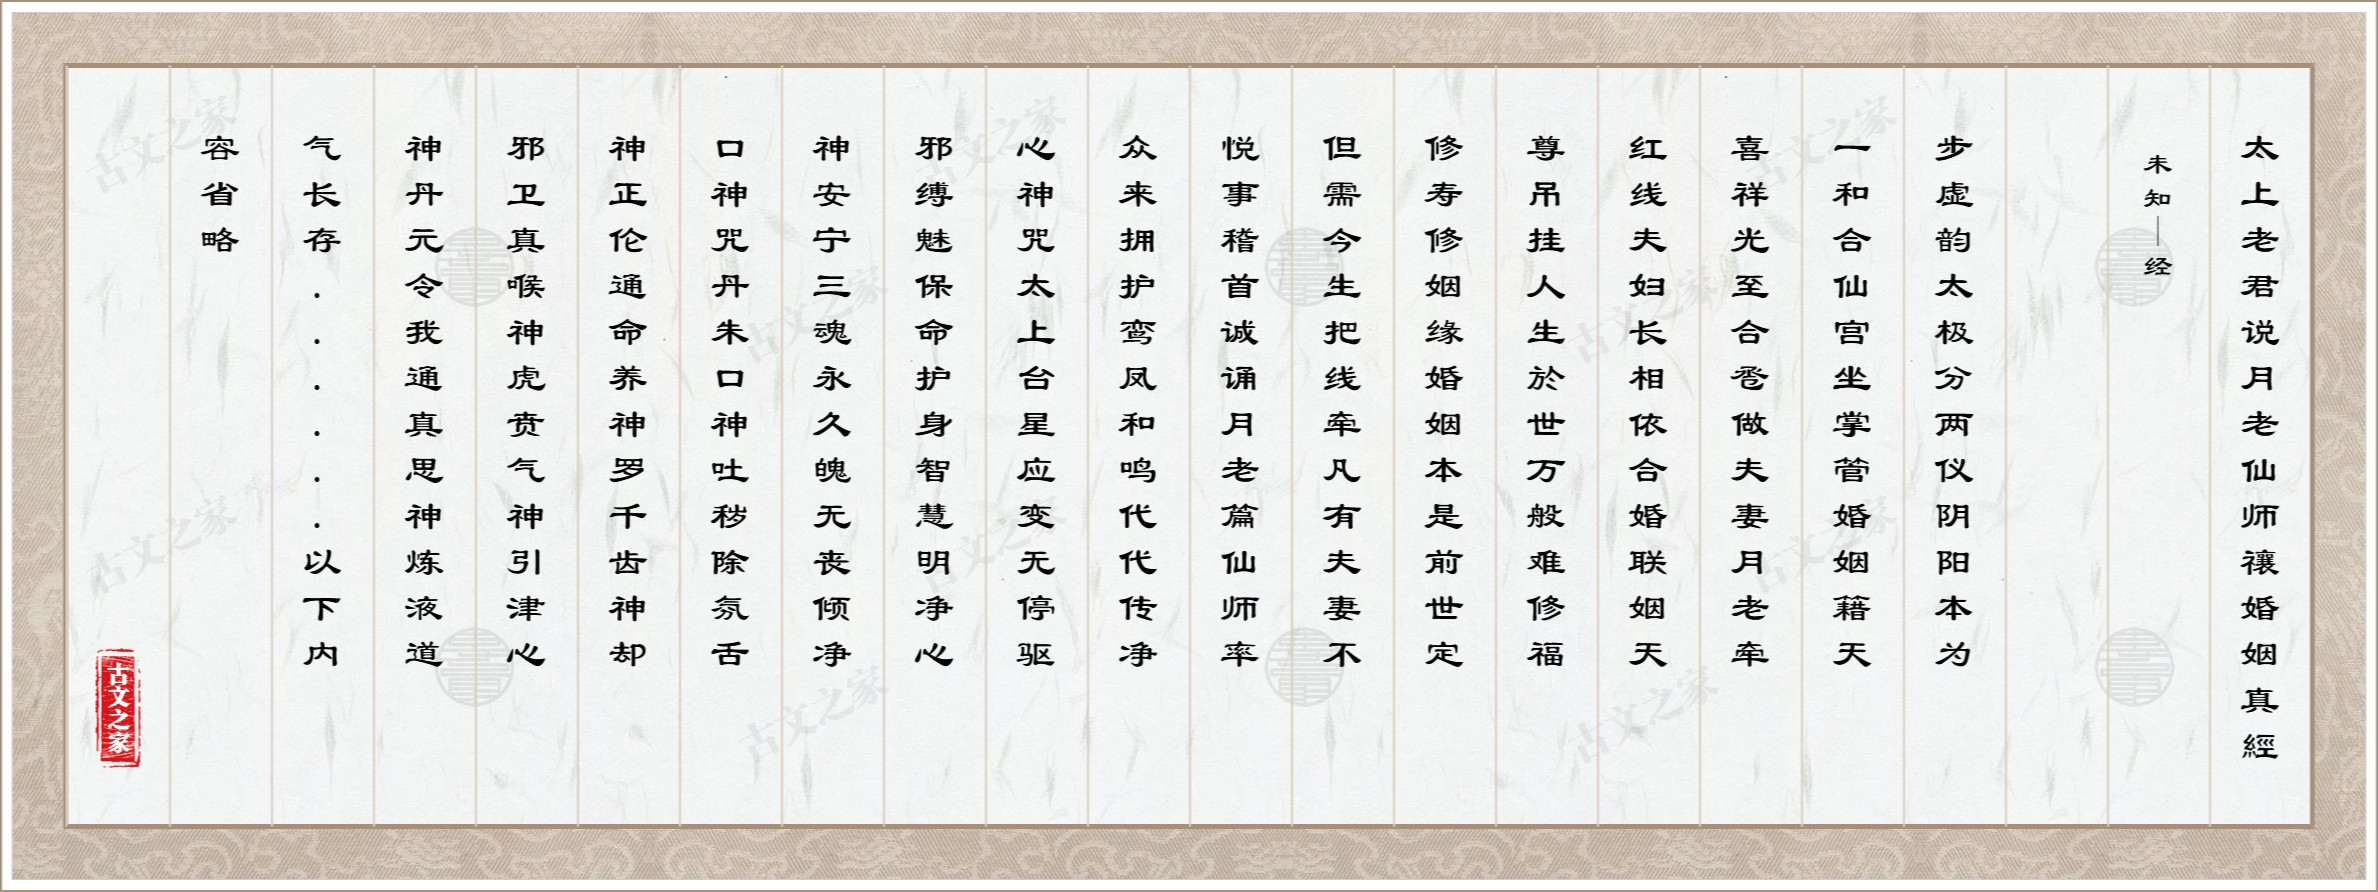 太上老君说月老仙师禳婚姻真經
未知—经
步虚韵太极分两仪阴阳本为
一和合仙宫坐掌管婚姻籍天
喜祥光至合卺做夫妻月老牵
红线夫妇长相依合婚联姻天
尊吊挂人生於世万般难修福
修寿修姻缘婚姻本是前世定
但需今生把线牵凡有夫妻不
悦事稽首诚诵月老篇仙师率
众来拥护鸾凤和鸣代代传净
心神咒太上台星应变无停驱
邪缚魅保命护身智慧明净心
神安宁三魂永久魄无丧倾净
口神咒丹朱口神吐秽除氛舌
神正伦通命养神罗千齿神却
邪卫真喉神虎贲气神引津心
神丹元令我通真思神炼液道
气长存......以下内
容省略
古文之家